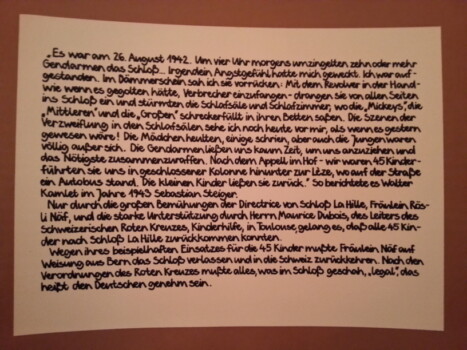 „Es war am 26. August 1942... Um vier Uhr morgens umzingelten zehn oder mehr
Gendarmen das Schloß... Irgendein Angstgefühl hatte mich geweckt. Ich war auf-
gestanden. Im Dämmerschein sah ich sie vorrücken: Mit dem Revolver in der Hand-
wie wenn es gegolten hätte, Verbrecher einzufangen - drangen sie von allen Seiten
ins Schloß ein und stürmten die Schlafsäle und Schlafzimmer, wo die „Mickeys", die
„Mittleren" und die „Großen" schreckerfüllt in ihren Betten saßen. Die Szenen der
Verzweiflung in den Schlafsälen sehe ich noch heute vor mir, als wenn es gestern
gewesen wäre! Die Mädchen heulten, einige schrien, aber auch die Jungen waren
völlig außer sich. Die Gendarmen ließen uns kaum Zeit, um uns anzuziehen und
das Nötigste zusammenzuraffen. Nach dem Appell im Hof - wir waren 45 Kinder-
führten sie uns in geschlossener Kolonne hinunter zur Lèze, wo auf der Straße
ein Autobus stand. Die kleinen Kinder ließen sie zurück." So berichtete es Walter
Kamlet im Jahre 1943 Sebastian Steiger.
Nur durch die großen Bemühungen der Directrice von Schloß La Hille, Fräulein Rös-
li Näf, und die starke Unterstützung durch Herrn Maurice Dubois, des Leiters des
Schweizerischen Roten Kreuzes, Kinderhilfe, in Toulouse, gelang es, daß alle 45 Kin-
der nach Schloß La Hille zurückkommen konnten.
Wegen ihres beispielhaften Einsatzes für die 45 Kinder mußte Fräulein Näf auf
Weisung aus Bern das Schloß verlassen und in die Schweiz zurückkehren. Nach den
Verordnungen des Roten Kreuzes mußte alles, was im Schloß geschah, „legal", das
heißt den Deutschen genehm sein.